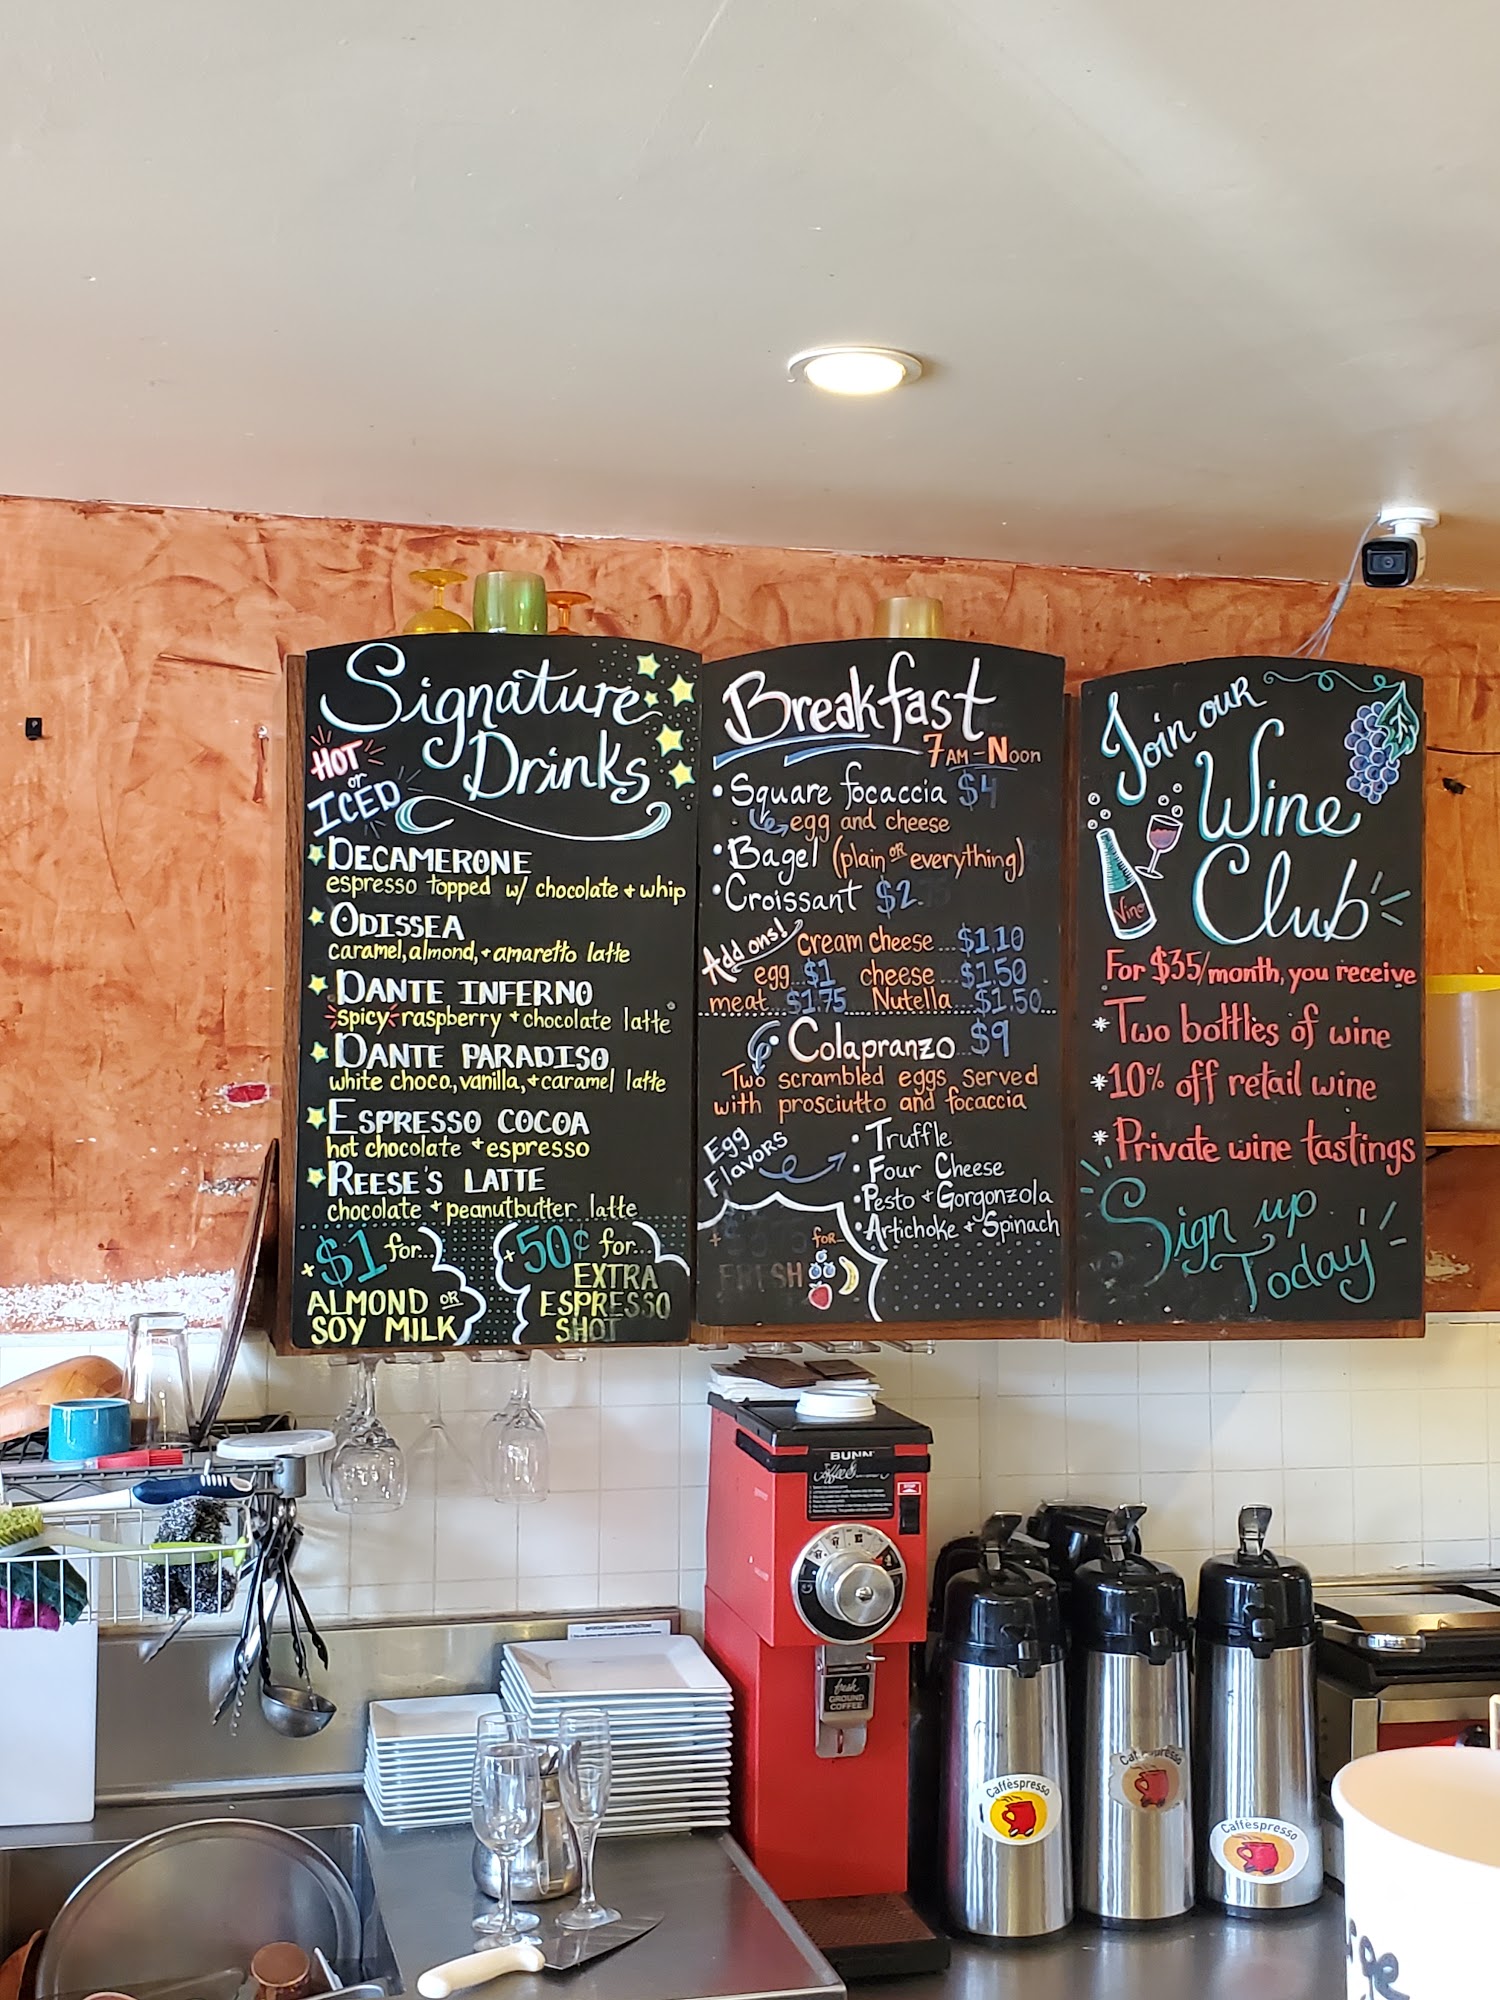 Signature
Drinks
HOT
or
ICED
DECAMERONE
espresso topped w/ chocolate + whip
ODISSEA
caramel, almond, + amaretto latte
DANTE INFERNO
spicy raspberry + chocolate latte
DANTE PARADISO
white choco., vanilla, + caramel latte
ESPRESSO COCOA
hot chocolate + espresso
REESE'S LATTE
chocolate + peanutbutter latte
+$1 for...
ALMOND OR
SOY MILK
+50¢ for...
EXTRA
ESPRESSO
SHOT
Breakfast
7AM-NOON
• Square focaccia $4
egg and cheese
• Bagel (plain OR everything)
• Croissant $2.
Add ons!
cream cheese...$1.10
egg $1 cheese...$1.50
meat...$1.75 Nutella...$1.50
• Colapranzo...$9
Two scrambled eggs served
with prosciutto and focaccia
Egg
FLAVORS
• Truffle
• Four Cheese
• Pesto + Gorgonzola
• Artichoke + Spinach
for
FRESH
Join our
Wine
Club
Vino
For $35/month, you receive
* Two bottles of wine
* 10% off retail wine
* Private wine tastings
Sign up
Today
BUNN
fresh
GROUND
COFFEE
Caffèspresso
Caffèspresso
Caffèspresso